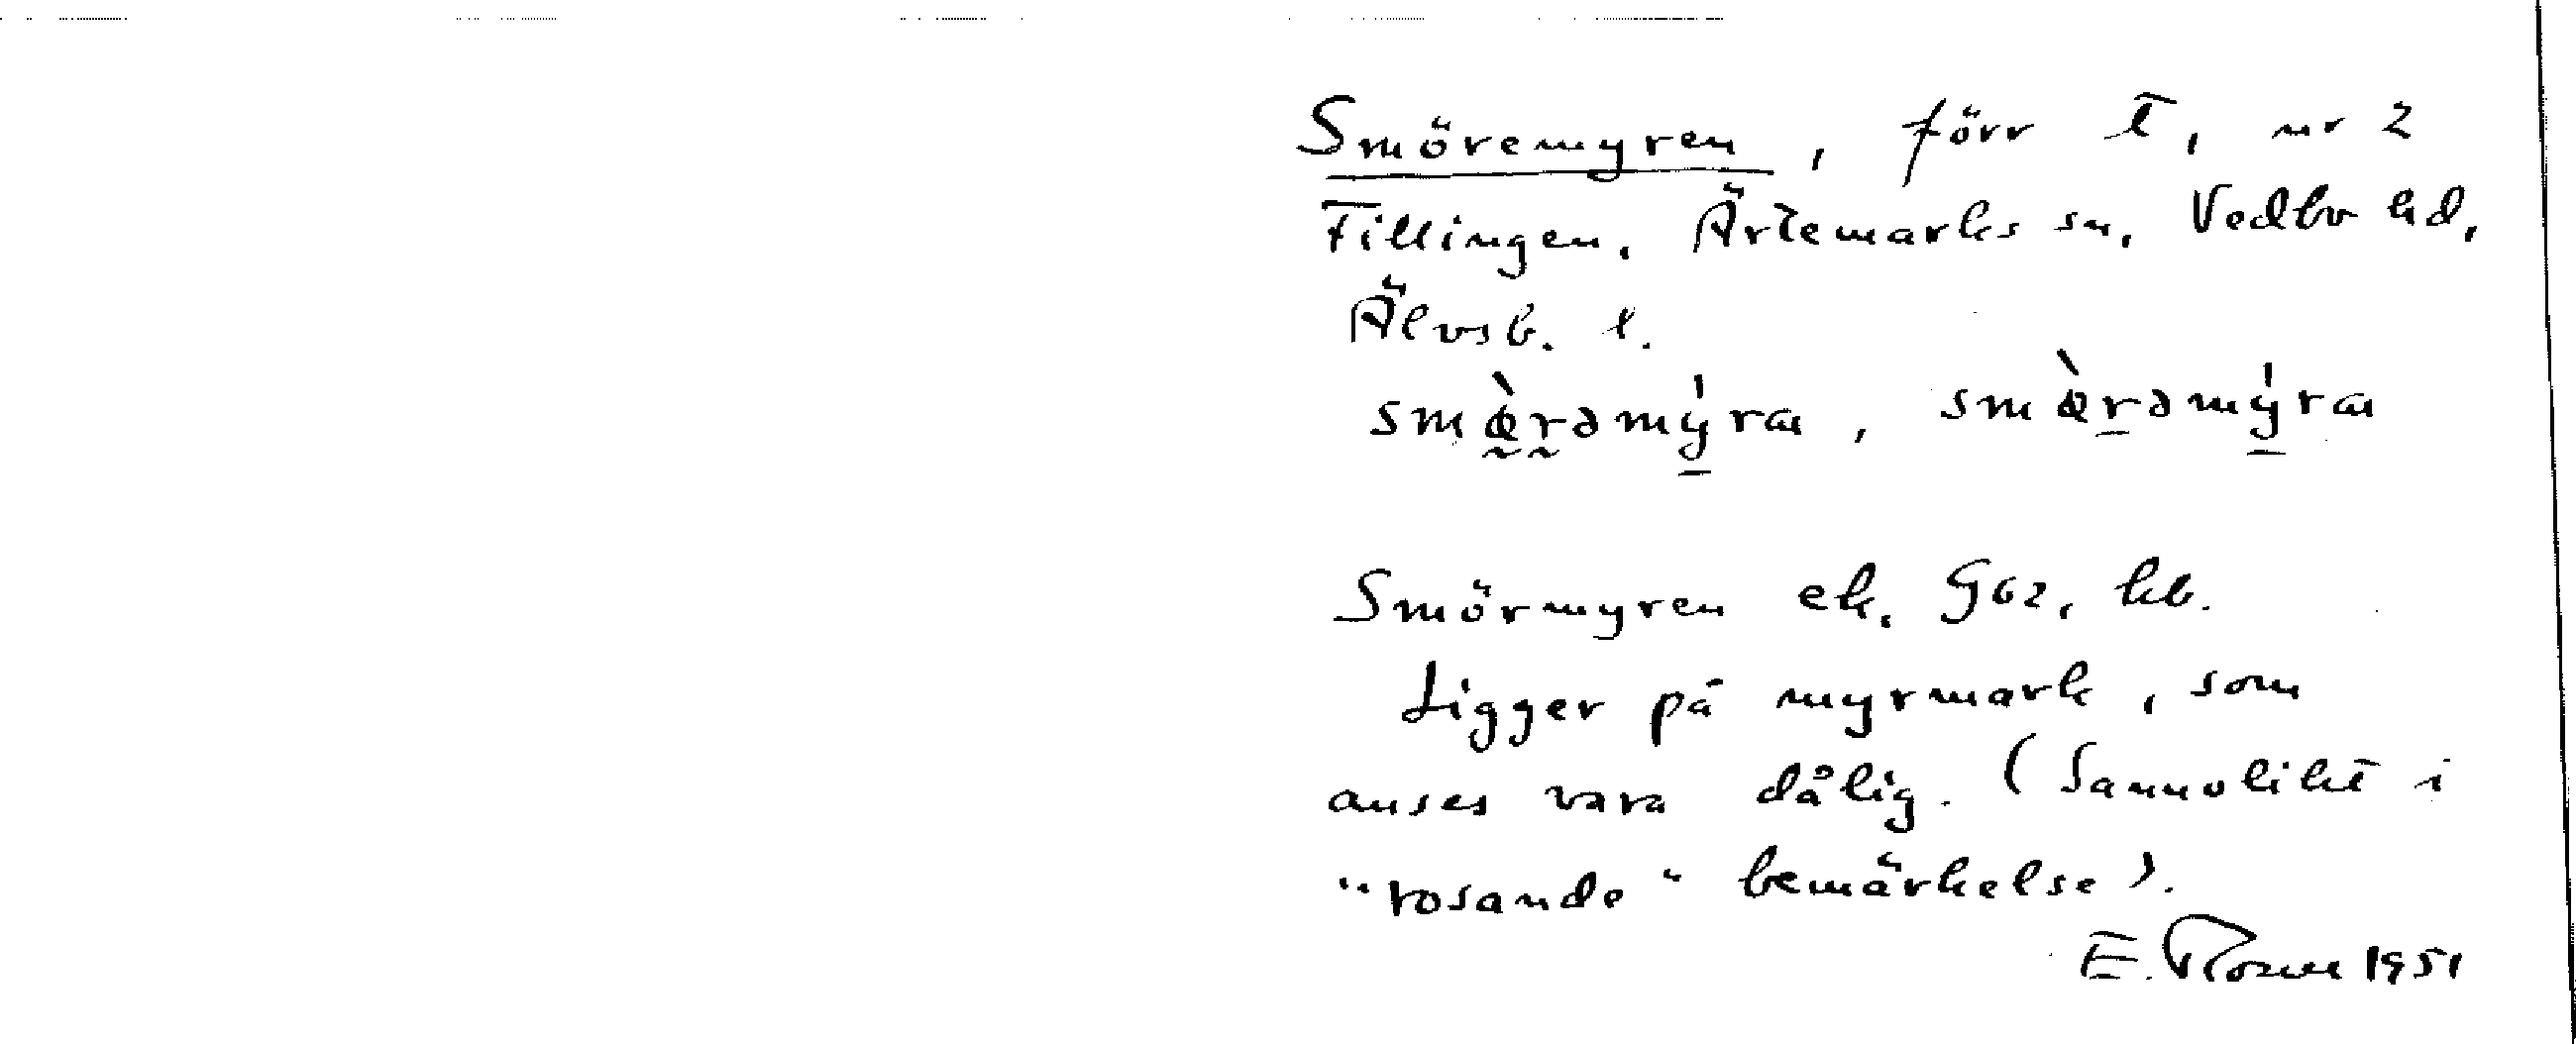 Smöremyren, förr t, nr 2
Fillingen. Ärtemarks sn, Vedbo hd,
Älvsb. l.
smø̀rəmýra, smø̀rəmýra
Smörmyren ek. 902, kb.
Ligger på myrmark, som
anses vara dålig. (Sannolikt i
"rosande" bemärkelse).
E. Rosell 1951